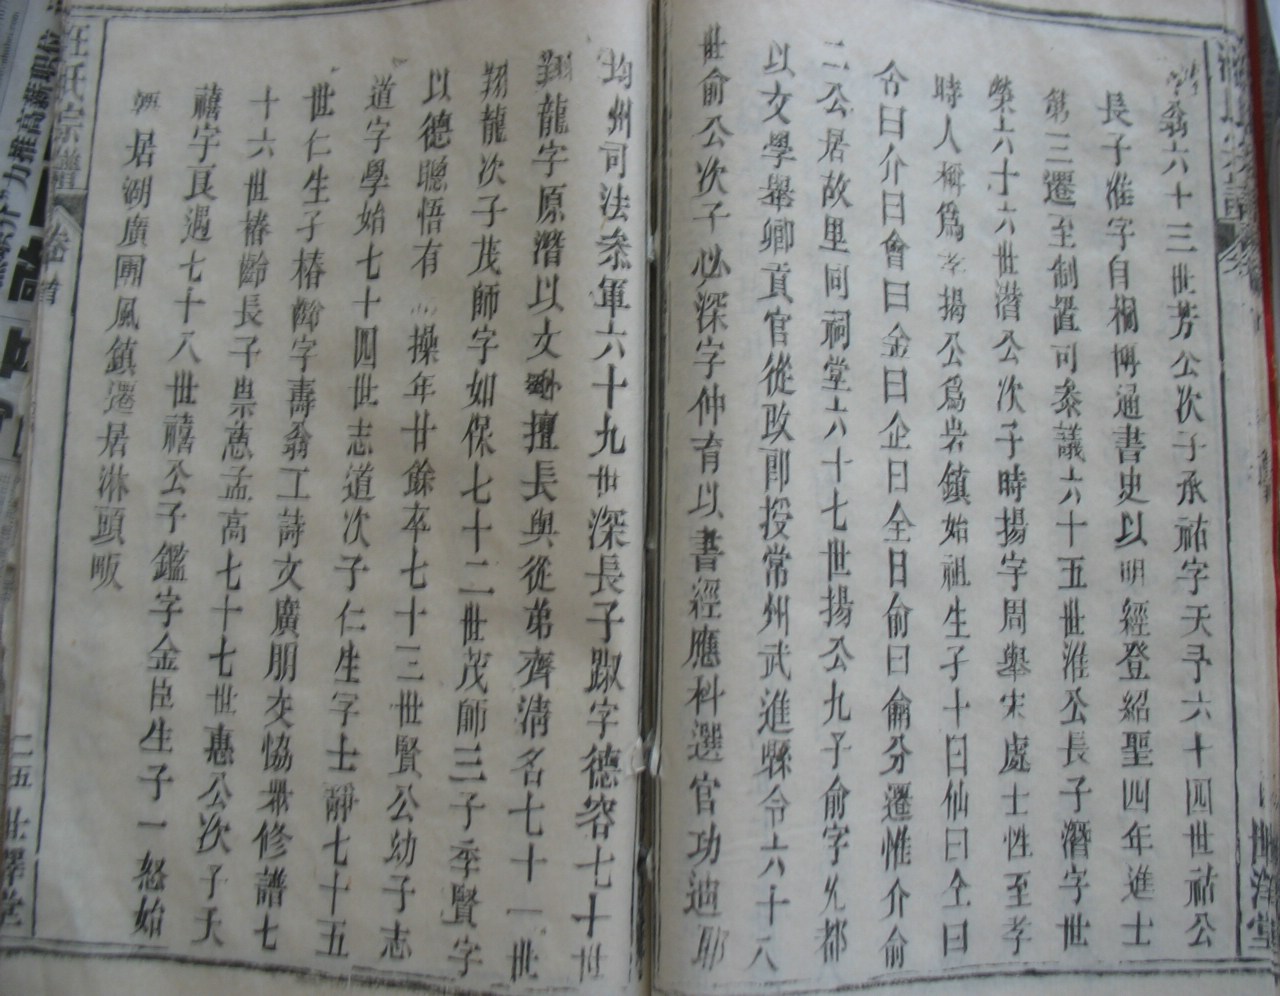 翁六十三世芳公次子承祐字天予六十四世祐公
長子淮字自桐博通書史以明經登紹聖四年進士
第三遷至制置司叅議六十五世淮公長子潛字世
榮六十六世潛公次子時揚字周舉宋處士性至孝
時人稱爲孝揚公爲岩鎮始祖生子十曰仙曰仝曰
令曰介曰會曰金曰企曰全曰俞曰侖分遷惟介俞
二公居故里同祠堂六十七世揚公九子俞字允都
以文學舉鄉貢官從政郎授常州武進縣令六十八
世俞公次子必深字仲育以書經應科選官功迪郎
均州司法叅軍六十九世深長子淑字德容七十世
翔龍字原潛以文擅長與從弟齊清名七十一世
翔龍次子茂師字如保七十二世茂師三子季賢字
以德聰悟有操年廿餘卒七十三世賢公幼子志
道字學始七十四世志道次子仁生字士靜七十五
世仁生子椿齡字壽翁工詩文廣朋交恊衆修譜七
十六世椿齡長子崇蕙孟高七十七世惠公次子天
禧字良遇七十八世禧公子鑑字金臣生子一怒始
遷居湖廣團風鎮遷居淋頭畈
汪氏宗譜 卷首 二五 世澤堂